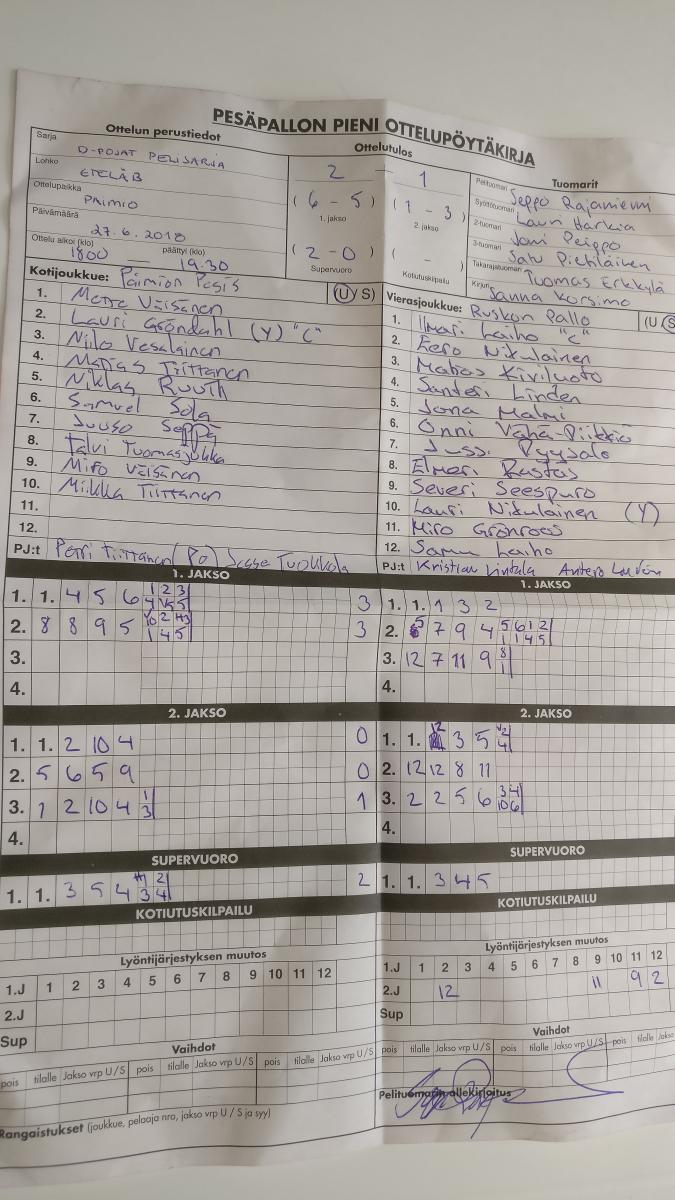 PESÄPALLON PIENI OTTELUPÖYTÄKIRJA
Ottelun perustiedot
Sarja D-POJAT PELISARJA
Lohko ETELÄ B
Ottelupaikka PAIMIO
Päivämäärä 27.6.2018
Ottelu alkoi (klo) 1800 päättyi (klo) 19.30
Ottelutulos
2 – 1
(6 – 5) (1 – 3)
1. jakso 2. jakso
(2 – 0) ( – )
Supervuoro Kotiutuskilpailu
Tuomarit
Pelituomari Seppo Rajaniemi
Syöttötuomari Lauri Harkia
2-tuomari Joni Peippo
3-tuomari Satu Pietiläinen
Takarajatuomari Tuomas Erkkylä
Kirjuri Sanna Korsimo
Kotijoukkue: Paimion Pesis (U/S)
1. Metre Väisänen
2. Lauri Gröndahl (Y) "C"
3. Niilo Vesalainen
4. Matias Tiittanen
5. Niklas Ruuth
6. Samuel Sola
7. Juuso Seppä
8. Talvi Tuomasjukka
9. Miro Väisänen
10. Miikka Tiittanen
11.
12.
PJ:t Petri Tiittanen (PO)
Vierasjoukkue: Ruskon Pallo (U/S
1. Ilmari Laiho "C"
2. Eero Nikulainen
3. Matias Kiviluoto
4. Santeri Linden
5. Joona Malmi
6. Onni Vähä-Piikkiö
7. Jussi Pyysalo
8. Elmeri Rastas
9. Severi Seespuro
10. Lauri Nikulainen (Y)
11. Miro Grönroos
12. Samu Laiho
PJ:t Kristian Lintula Antero
1. JAKSO
1. 1. 4 5 6 1 2 3 3
2. 8 8 9 5 3
1 4 5
3.
4.
1. JAKSO
1. 1. 1 3 2
2. 5 7 9 4 5 6 1 2
1 1 4 5
3. 12 7 11 9 8
1
4.
2. JAKSO
1. 1. 2 10 4 0
2. 5 6 5 9 0
3. 1 2 10 4 1 1
3
4.
2. JAKSO
1. 1. 12 3 5 √2
4
2. 12 12 8 11
3. 2 2 5 6 3 4
10 6
4.
SUPERVUORO
1. 1. 3 5 4 2
3 4
SUPERVUORO
1. 1. 3 4 5
KOTIUTUSKILPAILU
KOTIUTUSKILPAILU
Lyöntijärjestyksen muutos
1.J 1 2 3 4 5 6 7 8 9 10 11 12
2.J
Sup
Lyöntijärjestyksen muutos
1.J 1 2 3 4 5 6 7 8 9 10 11 12
2.J 12 11 9 2
Sup
Vaihdot
pois tilalle Jakso vrp U/S pois tilalle Jakso vrp U/S pois tilalle Jakso vrp U/S
Vaihdot
pois tilalle Jakso vrp U/S pois tilalle Jakso vrp U/S pois tilalle Jakso
Pelituomarin allekirjoitus
Rangaistukset (joukkue, pelaaja nro, jakso vrp U / S ja syy)